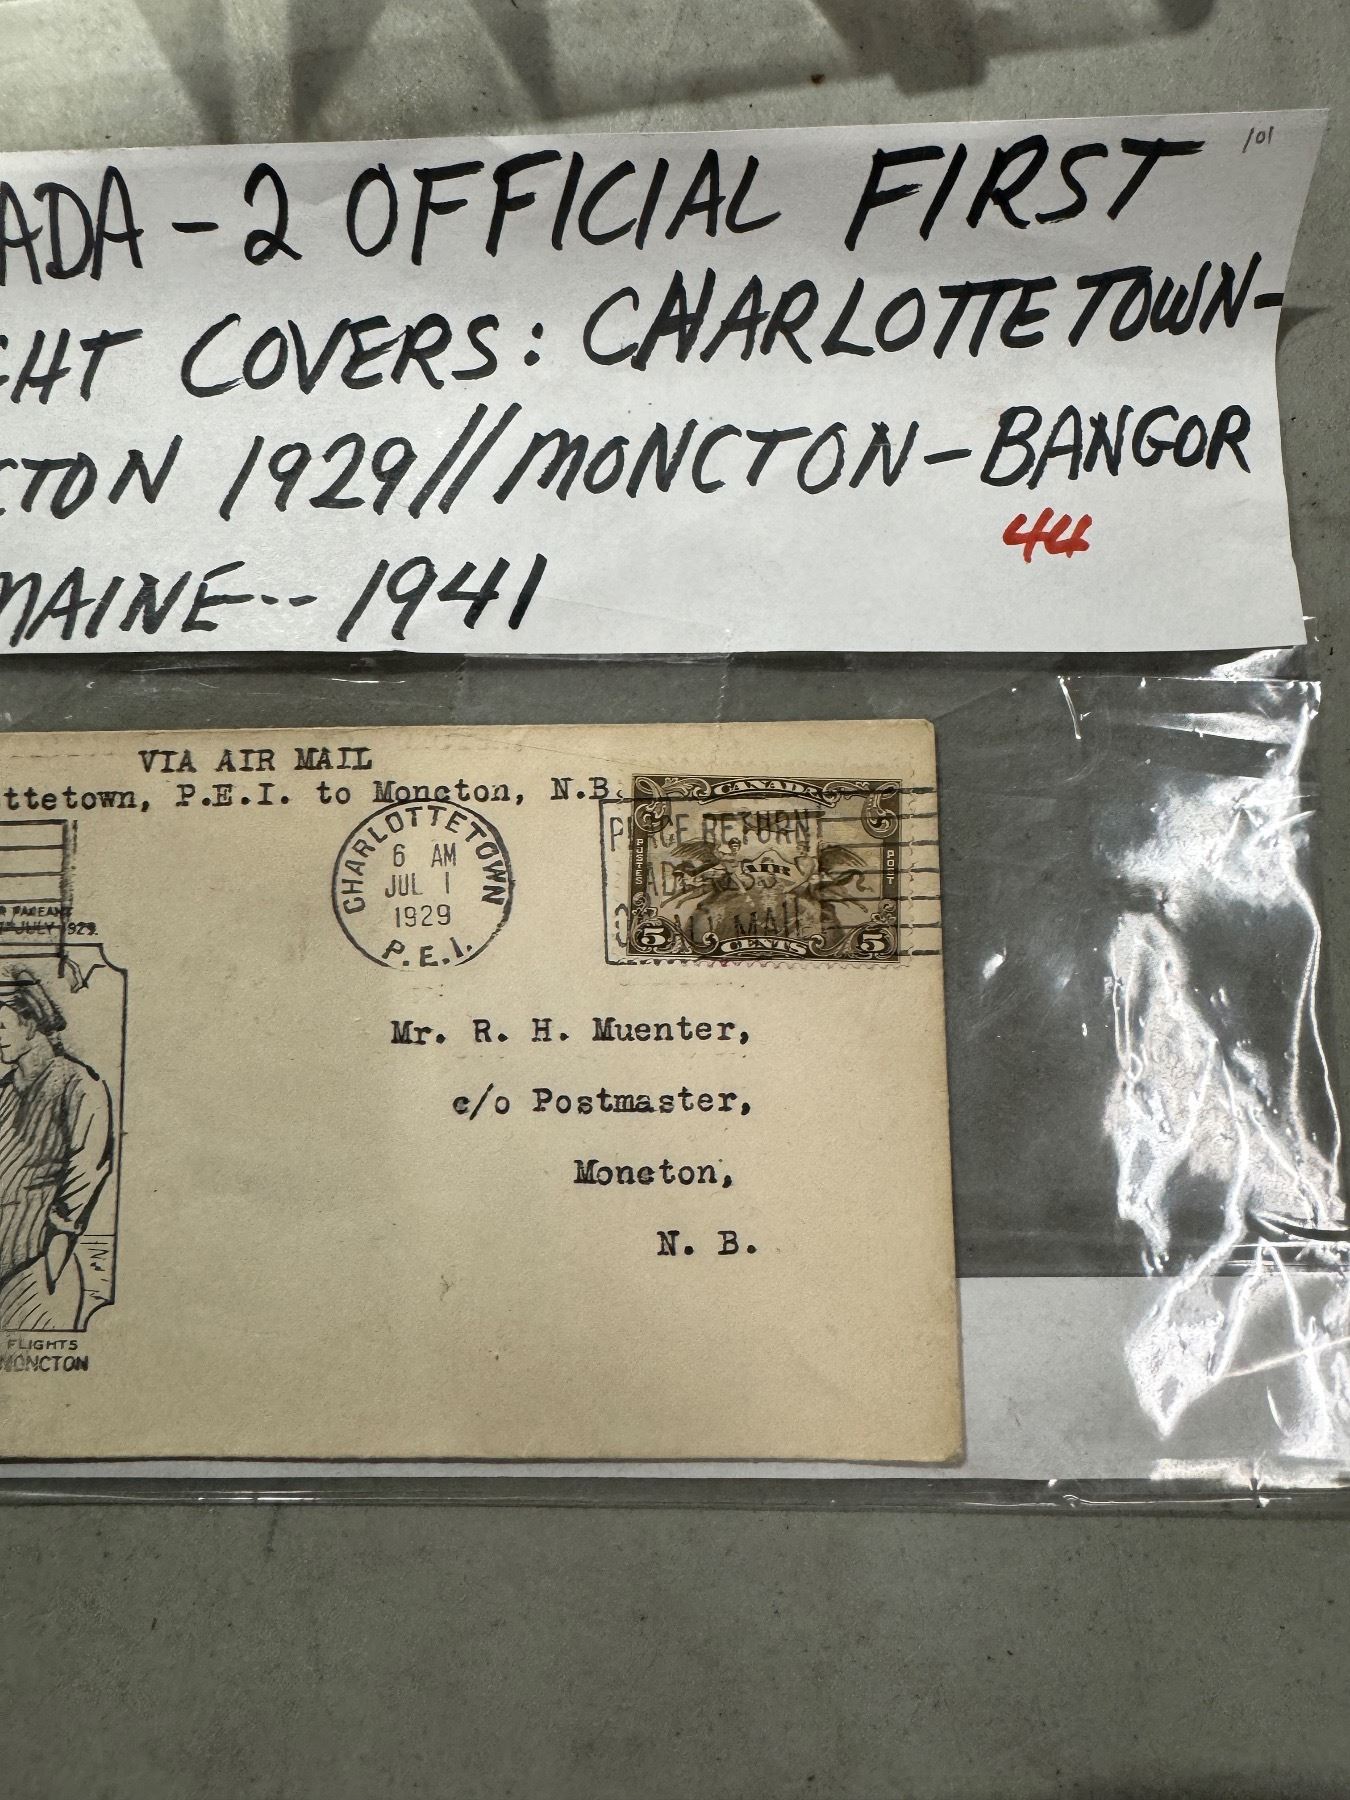 101
ADA - 2 OFFICIAL FIRST
GHT COVERS: CHARLOTTETOWN-
CTON 1929//MONCTON-BANGOR
44
MAINE-- 1941
VIA AIR MAIL
ttetown, P.E.I. to Moncton, N.B.
CHARLOTTETOWN
6 AM
JUL 1
1929
P.E.I.
PLACE RETURN
ADDRESS
MAIL
CANADA
POSTES
AIR
POST
5 CENTS 5
R PAGEANT
JULY 1929.
Mr. R. H. Muenter,
c/o Postmaster,
Moncton,
N. B.
FLIGHTS
MONCTON